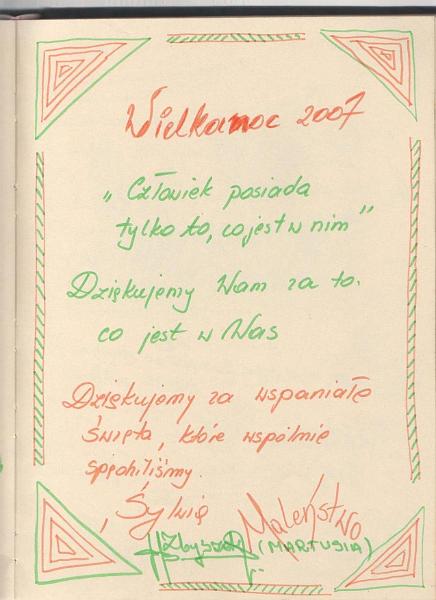 Wielkanoc 2007
„Człowiek posiada
tylko to, co jest w nim"
Dziękujemy Wam za to.
co jest w Was
Dziękujemy za wspaniałe
Święta, które wspólnie
spędziliśmy.
Maleństwo
Zbyszek (MARTUSIA)